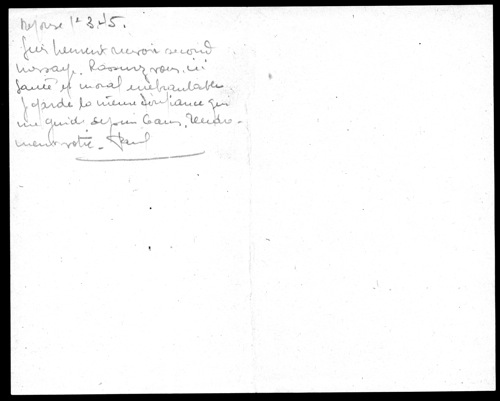 Réponse 1er 3.45.
Suis heureux recevoir second
message. Rassurez vous, ici
Santé et moral inébranlables
Je garde la même confiance qui
me guide depuis 6 ans. Tendre-
ment votre - Paul